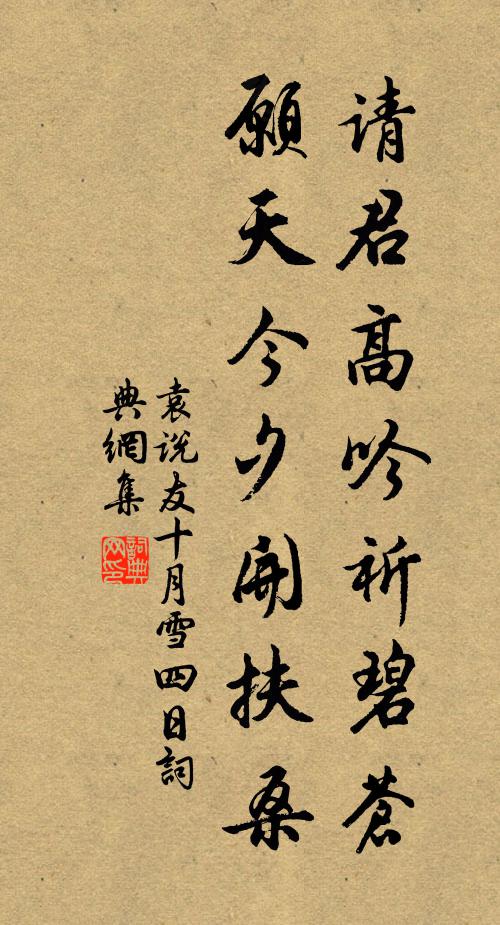 请君高吟祈碧苍
願天今夕開扶桑
袁说友十月雪四日詞
典網集
詞典
网印